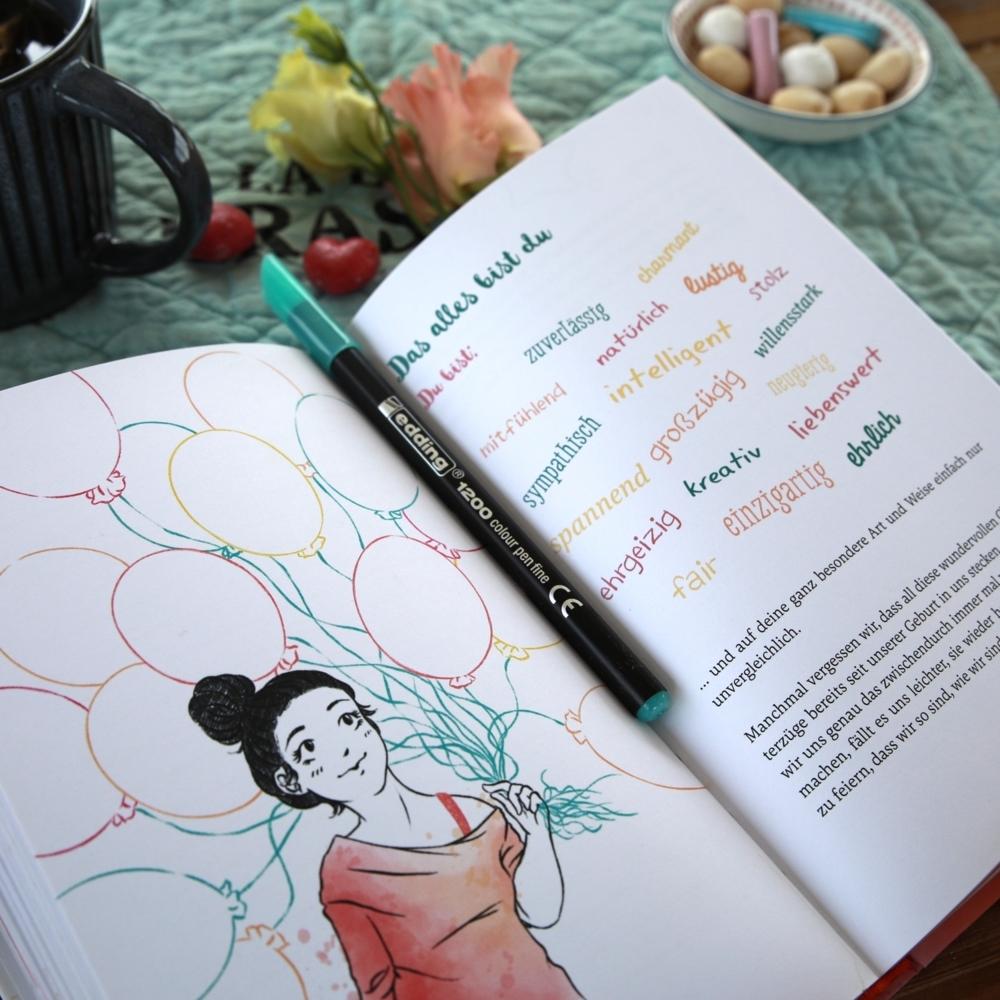 LA
RAS
Das alles bist du
Du bist:
charmant
zuverlässig
lustig
natürlich
stolz
mitfühlend
intelligent
willensstark
sympathisch
großzügig
neugierig
spannend
kreativ
liebenswert
ehrgeizig
einzigartig
ehrlich
fair
... und auf deine ganz besondere Art und Weise einfach nur
unvergleichlich.
Manchmal vergessen wir, dass all diese wundervollen
terzüge bereits seit unserer Geburt in uns stecken
wir uns genau das zwischendurch immer mal
machen, fällt es uns leichter, sie wieder
zu feiern, dass wir so sind, wie wir sind
edding® 1200 colour pen fine CE